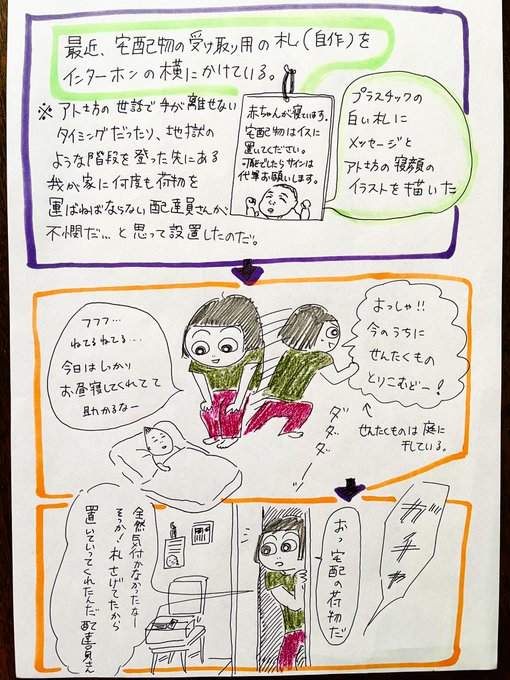 最近、宅配物の受け取り用の札(自作)を
インターホンの横にかけている。
※アト坊の世話で手が離せない
タイミングだったり、地獄の
ような階段を登った先にある
我が家に何度も荷物を
運ばねばならない配達員さんが
不憫だ…と思って設置したのだ。
赤ちゃんが寝ています。
宅配物はイスに
置いてください。
可能でしたらサインは
代筆お願いします。
プラスチックの
白い札に
メッセージと
アト坊の寝顔の
イラストを描いた
フフフ…
ねてるねてる…
今日はしっかり
お昼寝してくれてて
助かるなー
おっしゃ!!
今のうちに
せんたくもの
とりこむどー!
せんたくものは庭に
干している。
ダダダ
ガチャ
おっ宅配の荷物だ
全然気付かなかったなー
そっか!札さげてたから
置いていってくれたんだ配達員さん